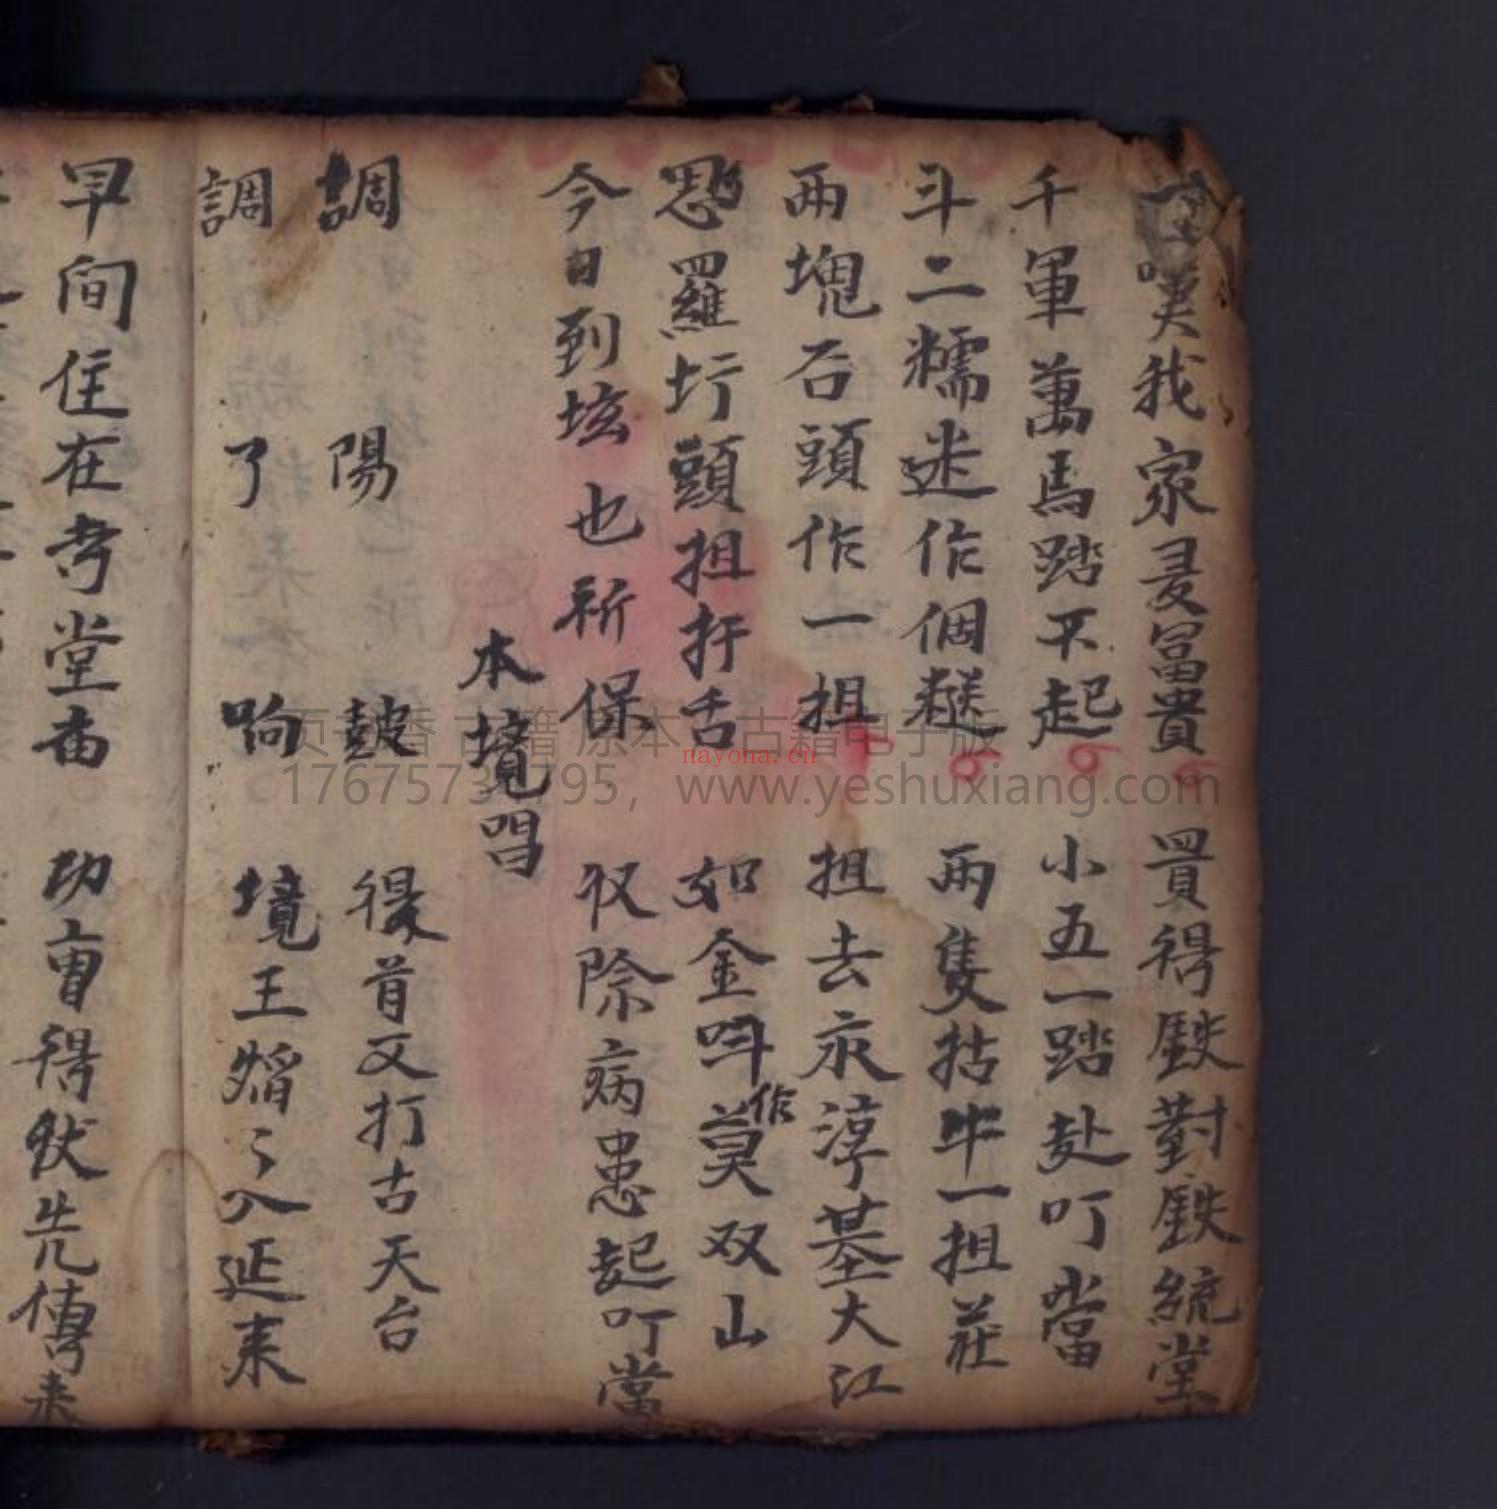 嘆我家裏富貴 買得鉄對鉄統堂
千軍萬馬踏不起 小五一踏赴叮當
斗二糯迷作個糍 兩隻牯牛一担莊
兩塊石頭作一担 担去永淳基大江
思羅圩頭担扞舌 如金呌莫作双山
今日到垓也祈保 収除病患起叮当
本境唱
調 陽 鼓 後首又打古天台
調 了 响 境王熖々入延来
早间住在考堂 功曹得伏先傳来
页 香古籍 原本 古籍电子版
nayona.cn
1767573 795，www.yeshuxiang.com